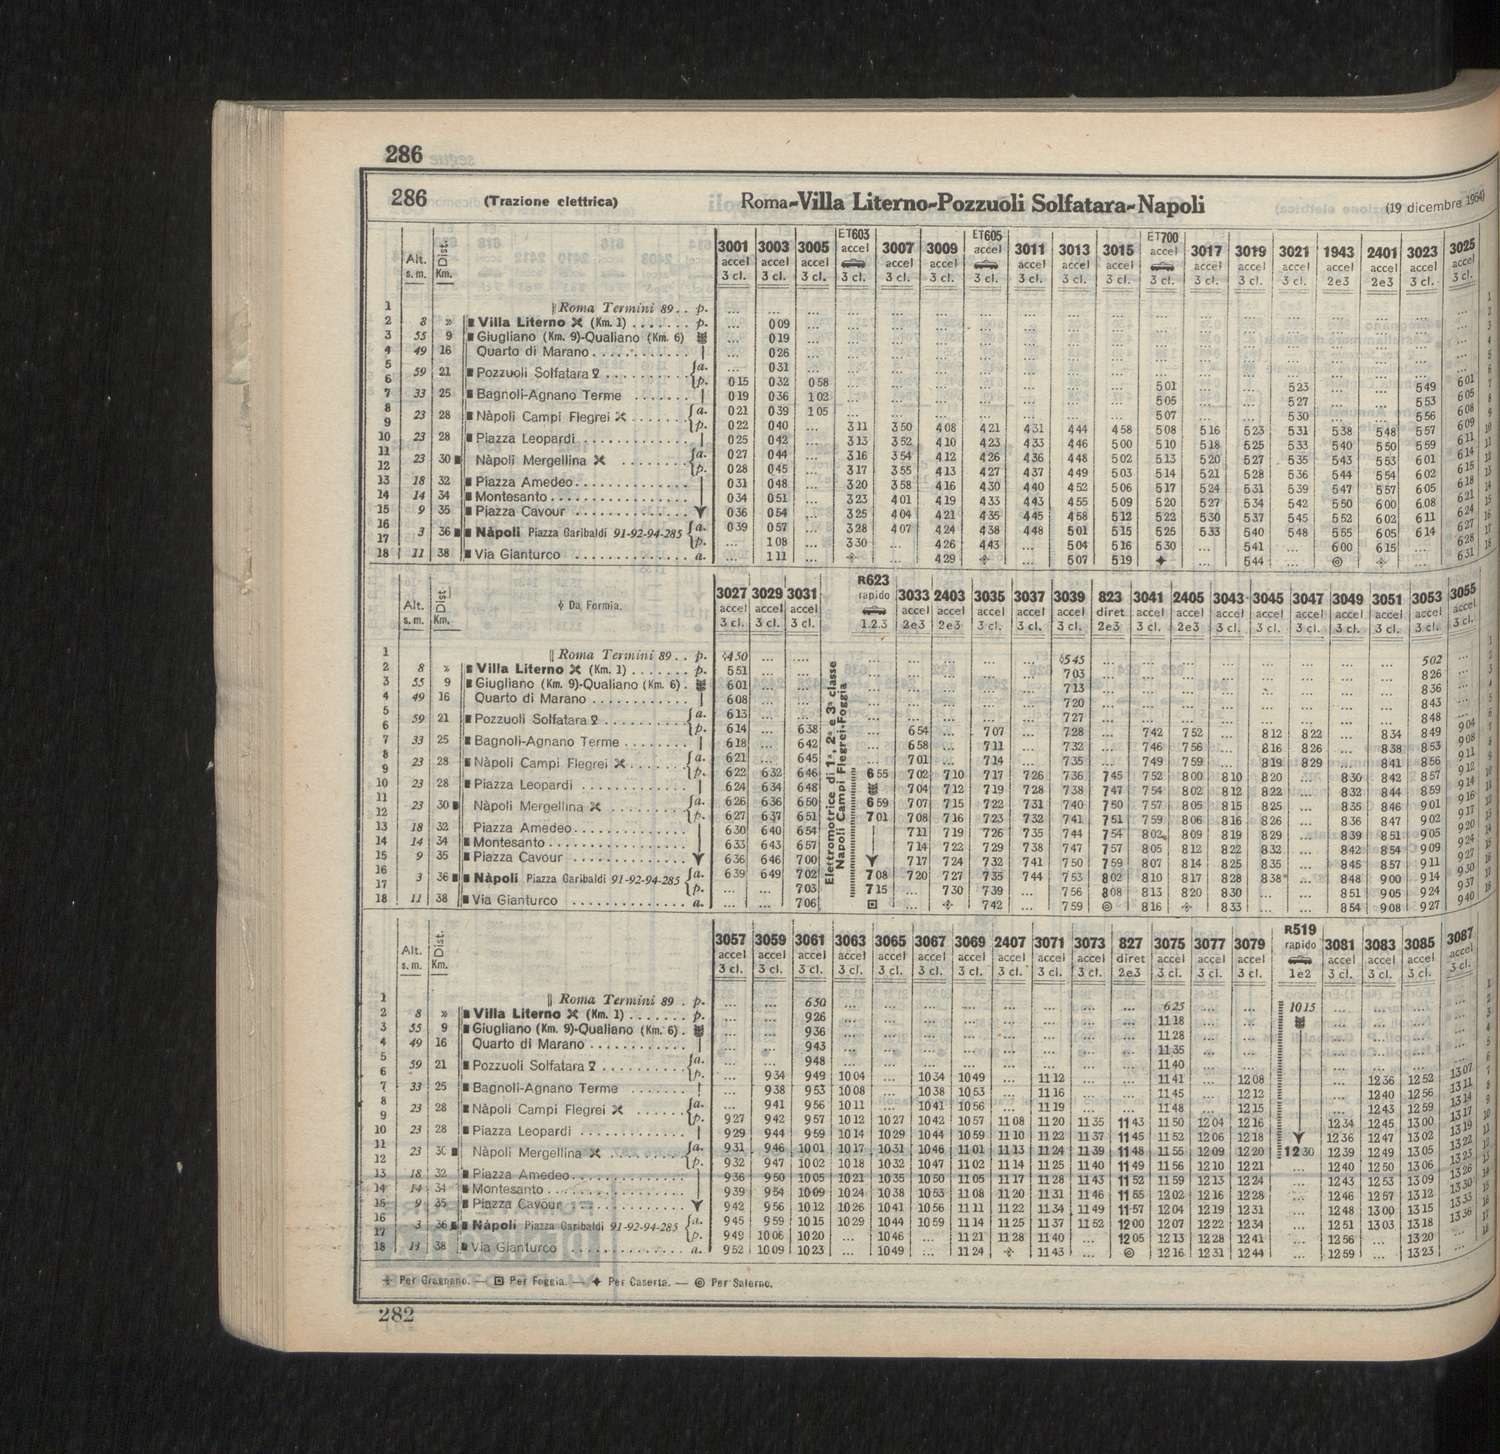 286
286 (Trazione elettrica) Roma-Villa Literno-Pozzuoli Solfatara-Napoli (19 dicembre 1954)
Alt. s. m. Dist. Km. 3001 3003 3005 ET603 3007 3009 ET605 3011 3013 3015 ET700 3017 3019 3021 1943 2401 3023 3025
accel accel accel accel accel accel accel accel accel accel accel accel accel accel accel accel accel accel
3 cl. 3 cl. 3 cl. 3 cl. 3 cl. 3 cl. 3 cl. 3 cl. 3 cl. 3 cl. 3 cl. 2e3 2e3 3 cl. 3 cl.
1 Roma Termini 89 . . p.
2 8 » Villa Literno (Km. 1) . . . . . . . p. ... 0 09
3 55 9 Giugliano (Km. 9)-Qualiano (Km. 6) ... 0 19
4 49 16 Quarto di Marano . . . . . . . . . . . ... 0 26
5 59 21 Pozzuoli Solfatara . . . . . . . . . . a. ... 0 31
6 p. 0 15 0 32 0 58 5 01 5 23 5 49 6 01
7 33 25 Bagnoli-Agnano Terme . . . . . . . 0 19 0 36 1 02 5 05 5 27 5 53 6 05
8 23 28 Nàpoli Campi Flegrei . . . . . . a. 0 21 0 39 1 05 5 07 5 30 5 56 6 08
9 p. 0 22 0 40 ... 3 11 3 50 4 08 4 21 4 31 4 44 4 58 5 08 5 16 5 23 5 31 5 38 5 48 5 57 6 09
10 23 28 Piazza Leopardi . . . . . . . . . . . . 0 25 0 42 ... 3 13 3 52 4 10 4 23 4 33 4 46 5 00 5 10 5 18 5 25 5 33 5 40 5 50 5 59 6 11
11 23 30 Nàpoli Mergellina . . . . . . . . a. 0 27 0 44 ... 3 16 3 54 4 12 4 26 4 36 4 48 5 02 5 13 5 20 5 27 5 35 5 43 5 53 6 01 6 14
12 p. 0 28 0 45 ... 3 17 3 55 4 13 4 27 4 37 4 49 5 03 5 14 5 21 5 28 5 36 5 44 5 54 6 02 6 15
13 18 32 Piazza Amedeo . . . . . . . . . . . . . 0 31 0 48 ... 3 20 3 58 4 16 4 30 4 40 4 52 5 06 5 17 5 24 5 31 5 39 5 47 5 57 6 05 6 18
14 14 34 Montesanto . . . . . . . . . . . . . . . . 0 34 0 51 ... 3 23 4 01 4 19 4 33 4 43 4 55 5 09 5 20 5 27 5 34 5 42 5 50 6 00 6 08 6 21
15 9 35 Piazza Cavour . . . . . . . . . . . . . 0 36 0 54 ... 3 25 4 04 4 21 4 35 4 45 4 58 5 12 5 22 5 30 5 37 5 45 5 52 6 02 6 11 6 24
16 3 36 Nàpoli Piazza Garibaldi 91-92-94-285 a. 0 39 0 57 ... 3 28 4 07 4 24 4 38 4 48 5 01 5 15 5 25 5 33 5 40 5 48 5 55 6 05 6 14 6 27
17 p. ... 1 08 ... 3 30 ... 4 26 4 43 ... 5 04 5 16 5 30 ... 5 41 ... 6 00 6 15 6 28
18 11 38 Via Gianturco . . . . . . . . . . . . . . a. ... 1 11 ... ... 4 29 ... 5 07 5 19 ✦ ... 5 44 ... ◎ 6 31
Alt. s. m. Dist. Km. Da Formia. 3027 3029 3031 R623 3033 2403 3035 3037 3039 823 3041 2405 3043 3045 3047 3049 3051 3053 3055
accel accel accel rapido accel accel accel accel accel diret accel accel accel accel accel accel accel accel accel
3 cl. 3 cl. 3 cl. 1.2.3 2e3 2e3 3 cl. 3 cl. 3 cl. 2e3 3 cl. 2e3 3 cl. 3 cl. 3 cl. 3 cl. 3 cl. 3 cl. 3 cl.
Elettromotrice di 1ª, 2ª e 3ª classe
Nàpoli Campi Flegrei-Foggia
1 Roma Termini 89 . . p. 4 50 5 45 5 02
2 8 » Villa Literno (Km. 1) . . . . . . . p. 5 51 7 03 8 26
3 55 9 Giugliano (Km. 9)-Qualiano (Km. 6) . 6 01 7 13 8 36
4 49 16 Quarto di Marano . . . . . . . . . . . . 6 08 7 20 8 43
5 59 21 Pozzuoli Solfatara . . . . . . . . . . a. 6 13 7 27 8 48
6 p. 6 14 ... 6 38 6 54 ... 7 07 ... 7 28 ... 7 42 7 52 ... 8 12 8 22 ... 8 34 8 49 9 04
7 33 25 Bagnoli-Agnano Terme . . . . . . . . 6 18 ... 6 42 6 58 ... 7 11 ... 7 32 ... 7 46 7 56 ... 8 16 8 26 ... 8 38 8 53 9 08
8 23 28 Nàpoli Campi Flegrei . . . . . . a. 6 21 ... 6 45 7 01 ... 7 14 ... 7 35 ... 7 49 7 59 ... 8 19 8 29 ... 8 41 8 56 9 11
9 p. 6 22 6 32 6 46 6 55 7 02 7 10 7 17 7 26 7 36 7 45 7 52 8 00 8 10 8 20 ... 8 30 8 42 8 57 9 12
10 23 28 Piazza Leopardi . . . . . . . . . . . . 6 24 6 34 6 48 7 04 7 12 7 19 7 28 7 38 7 47 7 54 8 02 8 12 8 22 ... 8 32 8 44 8 59 9 14
11 23 30 Nàpoli Mergellina . . . . . . . . . a. 6 26 6 36 6 50 6 59 7 07 7 15 7 22 7 31 7 40 7 50 7 57 8 05 8 15 8 25 ... 8 35 8 46 9 01 9 16
12 p. 6 27 6 37 6 51 7 01 7 08 7 16 7 23 7 32 7 41 7 51 7 59 8 06 8 16 8 26 ... 8 36 8 47 9 02 9 17
13 18 32 Piazza Amedeo . . . . . . . . . . . . . . 6 30 6 40 6 54 7 11 7 19 7 26 7 35 7 44 7 54 8 02 8 09 8 19 8 29 ... 8 39 8 51 9 05 9 20
14 14 34 Montesanto . . . . . . . . . . . . . . . . 6 33 6 43 6 57 7 14 7 22 7 29 7 38 7 47 7 57 8 05 8 12 8 22 8 32 ... 8 42 8 54 9 09 9 24
15 9 35 Piazza Cavour . . . . . . . . . . . . . . 6 36 6 46 7 00 7 17 7 24 7 32 7 41 7 50 7 59 8 07 8 14 8 25 8 35 ... 8 45 8 57 9 11 9 27
16 3 36 Nàpoli Piazza Garibaldi 91-92-94-285 a. 6 39 6 49 7 02 7 08 7 20 7 27 7 35 7 44 7 53 8 02 8 10 8 17 8 28 8 38 ... 8 48 9 00 9 14 9 30
17 p. ... ... 7 03 7 15 ... 7 30 7 39 ... 7 56 8 08 8 13 8 20 8 30 ... ... 8 51 9 05 9 24 9 37
18 11 38 Via Gianturco . . . . . . . . . . . . . . a. ... ... 7 06 ⊡ ... 7 42 ... 7 59 ◎ 8 16 8 33 ... ... 8 54 9 08 9 27 9 40
Alt. s. m. Dist. Km. 3057 3059 3061 3063 3065 3067 3069 2407 3071 3073 827 3075 3077 3079 R519 3081 3083 3085 3087
accel accel accel accel accel accel accel accel accel accel diret accel accel accel rapido accel accel accel accel
3 cl. 3 cl. 3 cl. 3 cl. 3 cl. 3 cl. 3 cl. 3 cl. 3 cl. 3 cl. 2e3 3 cl. 3 cl. 3 cl. 1e2 3 cl. 3 cl. 3 cl. 3 cl.
1 Roma Termini 89 . p. ... ... 6 50 6 25 10 15
2 8 » Villa Literno (Km. 1) . . . . . . . p. ... ... 9 26 11 18
3 55 9 Giugliano (Km. 9)-Qualiano (Km. 6) . ... ... 9 36 11 28
4 49 16 Quarto di Marano . . . . . . . . . . . . ... ... 9 43 11 35
5 59 21 Pozzuoli Solfatara . . . . . . . . . . a. ... ... 9 48 11 40
6 p. ... 9 34 9 49 10 04 ... 10 34 10 49 ... 11 12 ... ... 11 41 ... 12 08 ... 12 36 12 52 13 07
7 33 25 Bagnoli-Agnano Terme . . . . . . . ... 9 38 9 53 10 08 ... 10 38 10 53 ... 11 16 ... ... 11 45 ... 12 12 ... 12 40 12 56 13 11
8 23 28 Nàpoli Campi Flegrei . . . . . . a. ... 9 41 9 56 10 11 ... 10 41 10 56 ... 11 19 ... ... 11 48 ... 12 15 ... 12 43 12 59 13 14
9 p. 9 27 9 42 9 57 10 12 10 27 10 42 10 57 11 08 11 20 11 35 11 43 11 50 12 04 12 16 12 34 12 45 13 00 13 17
10 23 28 Piazza Leopardi . . . . . . . . . . . . 9 29 9 44 9 59 10 14 10 29 10 44 10 59 11 10 11 22 11 37 11 45 11 52 12 06 12 18 12 36 12 47 13 02 13 19
11 23 30 Nàpoli Mergellina . . . . . . . . . a. 9 31 9 46 10 01 10 17 10 31 10 46 11 01 11 13 11 24 11 39 11 48 11 55 12 09 12 20 12 30 12 39 12 49 13 05 13 22
12 p. 9 32 9 47 10 02 10 18 10 32 10 47 11 02 11 14 11 25 11 40 11 49 11 56 12 10 12 21 ... 12 40 12 50 13 06 13 23
13 18 32 Piazza Amedeo . . . . . . . . . . . . . . 9 36 9 50 10 05 10 21 10 35 10 50 11 05 11 17 11 28 11 43 11 52 11 59 12 13 12 24 ... 12 43 12 53 13 09 13 26
14 14 34 Montesanto . . . . . . . . . . . . . . . . 9 39 9 54 10 09 10 24 10 38 10 53 11 08 11 20 11 31 11 46 11 55 12 02 12 16 12 28 ... 12 46 12 57 13 12 13 30
15 9 35 Piazza Cavour . . . . . . . . . . . . . . 9 42 9 56 10 12 10 26 10 41 10 56 11 11 11 22 11 34 11 49 11 57 12 04 12 19 12 31 ... 12 48 13 00 13 15 13 33
16 3 36 Nàpoli Piazza Garibaldi 91-92-94-285 a. 9 45 9 59 10 15 10 29 10 44 10 59 11 14 11 25 11 37 11 52 12 00 12 07 12 22 12 34 ... 12 51 13 03 13 18 13 36
17 p. 9 49 10 06 10 20 ... 10 46 ... 11 21 11 28 11 40 ... 12 05 12 13 12 28 12 41 ... 12 56 ... 13 20 ...
18 11 38 Via Gianturco . . . . . . . . . . . . . . a. 9 52 10 09 10 23 ... 10 49 ... 11 24 11 43 ... ◎ 12 16 12 31 12 44 ... 12 59 ... 13 23 ...
Per Gragnano. — ⊡ Per Foggia. — ✦ Per Caserta. — ◎ Per Salerno.
282